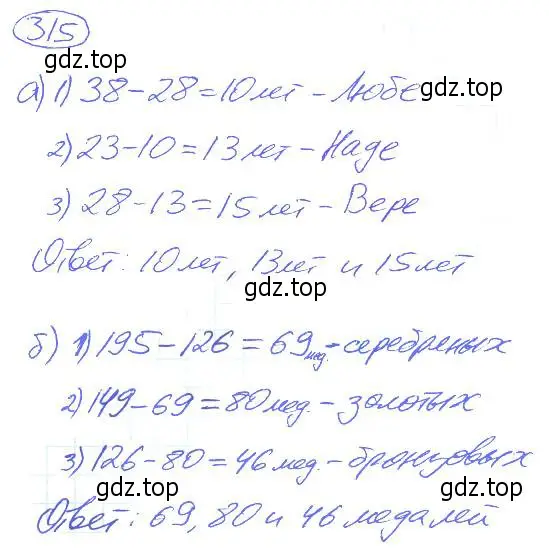 315
gdz.top
а) 1) 38-28=10 лет - Любе
gdz.top
2) 23-10=13 лет - Наде
3) 28-13=15 лет - Вере
Ответ: 10 лет, 13 лет и 15 лет
gdz.top
б) 1) 195-126=69 мед. - серебреных
2) 149-69=80 мед. - золотых
3) 126-80=46 мед. - бронзовых
gdz.top
gdz.top
Ответ: 69, 80 и 46 медалей